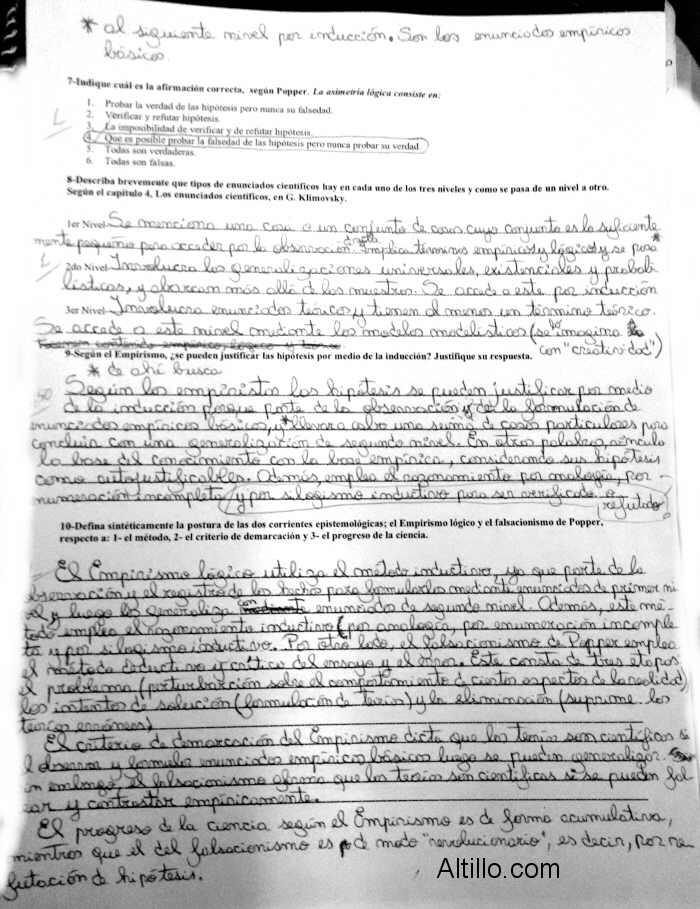 * al siguiente nivel por inducción. Son los enunciados empíricos
básicos.
7-Indique cuál es la afirmación correcta, según Popper. La asimetría lógica consiste en:
1. Probar la verdad de las hipótesis pero nunca su falsedad.
2. Verificar y refutar hipótesis.
3. La imposibilidad de verificar y de refutar hipótesis.
4. Que es posible probar la falsedad de las hipótesis pero nunca probar su verdad
5. Todas son verdaderas.
6. Todas son falsas.
8-Describa brevemente que tipos de enunciados científicos hay en cada uno de los tres niveles y como se pasa de un nivel a otro.
Según el capítulo 4, Los enunciados científicos, en G. Klimovsky.
1er Nivel- Se menciona una cosa o un conjunto de casos cuyo conjunto es lo suficiente
mente pequeño para acceder por la observación directa. Implica términos empíricos y lógicos y se pasa *
2do Nivel- Involucra las generalizaciones universales, existenciales y probabi
lísticas, y abarcan más allá de las muestras. Se accede a este por inducción
3er Nivel- Involucra enunciados teóricos y tienen al menos un término teórico.
Se accede a este nivel mediante los modelos modelísticos (se lo imagina
con "creatividad")
9-Según el Empirismo, ¿se pueden justificar las hipótesis por medio de la inducción? Justifique su respuesta.
* de ahí busca
Según los empiristas las hipótesis se pueden justificar por medio
de la inducción porque parte de la observación y de la formulación de
enunciados empíricos básicos, y * llevar a cabo una suma de casos particulares para
concluir con una generalización de segundo nivel. En otras palabras, vincula
la base del conocimiento con la base empírica, considerando sus hipótesis
como autojustificables. Además, emplea el razonamiento por analogía, por
numeración incompleta y por silogismo inductivo para ser verificado o
refutado?
10-Defina sintéticamente la postura de las dos corrientes epistemológicas; el Empirismo lógico y el falsacionismo de Popper,
respecto a: 1- el método, 2- el criterio de demarcación y 3- el progreso de la ciencia.
El Empirismo lógico utiliza el método inductivo, ya que parte de la
observación y el registro de los hechos para formularlos mediante enunciados de primer ni
vel y luego los generaliza con enunciados de segundo nivel. Además, este mé-
todo emplea el razonamiento inductivo (por analogía, por enumeración incomple
ta y por silogismo inductivo. Por otro lado, el falsacionismo de Popper emplea
el método deductivo y crítico del ensayo y el error. Este consta de tres etapas
el problema (perturbación sobre el comportamiento de ciertos aspectos de la realidad)
los intentos de solución (formulación de teorías) y la eliminación (suprime las
teorías erróneas)
El criterio de demarcación del Empirismo dicta que las teorías son científicas si
observa y formula enunciados empíricos básicos luego se pueden generalizar. S
in embargo, el falsacionismo afirma que las teorías son científicas si se pueden fal
sear y contrastar empíricamente.
El progreso de la ciencia según el Empirismo es de forma acumulativa,
mientras que el del falsacionismo es de modo "revolucionario", es decir, por re
futación de hipótesis.
Altillo.com